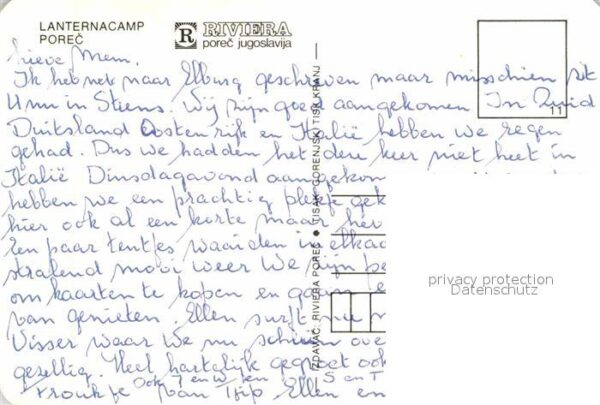 LANTERNACAMP
POREČ
R RIVIERA
poreč jugoslavija
Lieve Mem,
Ik heb net naar Elburg geschreven maar misschien zit
U nu in Stiens. Wij zijn goed aangekomen In Zuid
Duitsland Oostenrijk en Italië hebben we regen
gehad. Dus we hadden het deze keer niet heet in
Italië Dinsdagavond aangekom
hebben we een prachtig plekje gek
hier ook al een korte maar hev
Een paar tentjes waaiden in elkaa
stralend mooi weer We zijn be
om kaarten te kopen en gaan
van genieten. Ellen surft nu
Visser waar we nu schuin ove
gezellig. Heel hartelijk gegroet ook
Ook J en W en S en T
Froukje van Ellen en
11
IZDAVAČ: RIVIERA POREČ ● TISAK GORENJSKI TISK KRANJ
privacy protection
Datenschutz